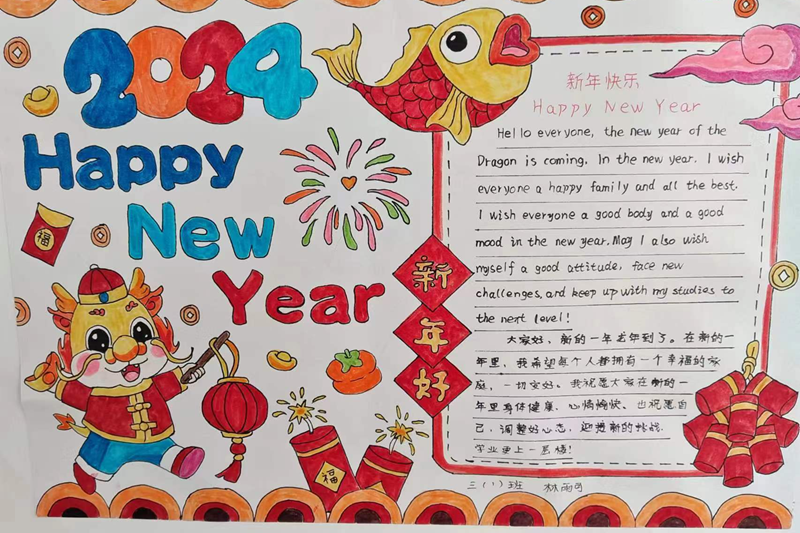 2024
Happy
New
Year
福
福
新
年
好
新年快乐
Happy New Year
Hello everyone, the new year of the
Dragon is coming. In the new year. I wish
everyone a happy family and all the best.
I wish everyone a good body and a good
mood in the new year. May I also wish
myself a good attitude, face new
challenges, and keep up with my studies to
the next level!
大家好，新的一年龙年到了。在新的一
年里，我希望每个人都拥有一个幸福的家
庭，一切安好。我祝愿大家在新的一
年里身体健康、心情愉快、也祝愿自
己，调整好心态，迎接新的挑战，
学业更上一层楼！
三（1）班 林